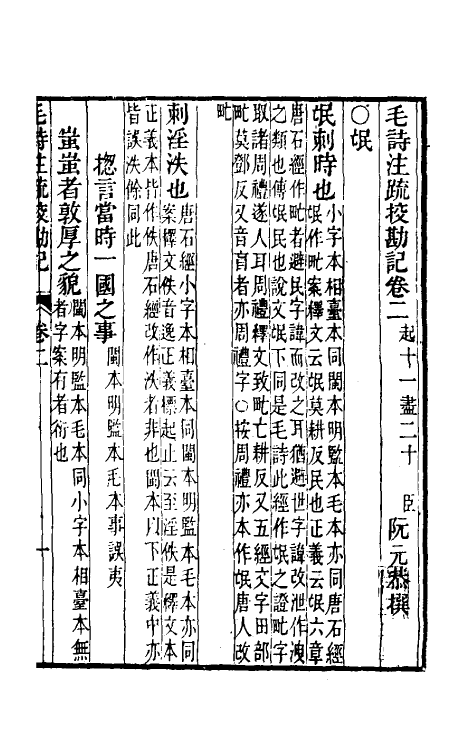 毛詩注疏挍勘記卷二 起十一盡二十 臣阮元恭撰
○氓
氓刺時也 小字本相臺本同閩本明監本毛本亦同唐石經
氓作甿案釋文云氓莫耕反民也正義云氓六章
唐石經作甿者避民字諱而改之耳猶避世字諱改泄作洩
之類也傳氓民也說文氓下同是毛詩此經作氓之證甿字
取諸周禮遂人耳周禮釋文致甿亡耕反又五經文字田部
甿莫鄧反又音盲者亦周禮字○按周禮亦本作氓唐人改
甿
刺淫泆也 唐石經小字本相臺本同閩本明監本毛本亦同
案釋文佚音逸正義標起止云至淫佚是釋文本
正義本皆作佚唐石經改作泆者非也閩本以下正義中亦
皆誤泆餘同此
揔言當時一國之事 閩本明監本毛本事誤夷
蚩蚩者敦厚之貌 閩本明監本毛本同小字本相臺本無
者字案有者衍也
毛詩注疏挍勘記 卷二 一